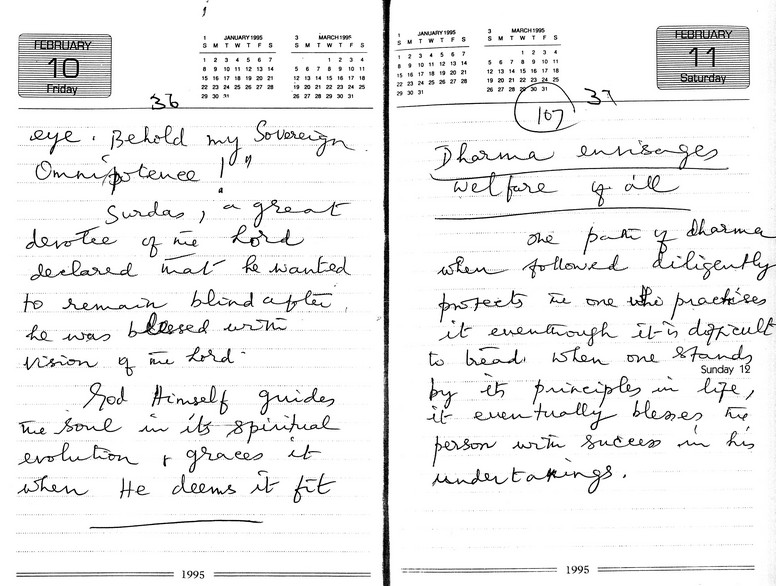 FEBRUARY
10
Friday
1 JANUARY 1995
S M T W T F S
1 2 3 4 5 6 7
8 9 10 11 12 13 14
15 16 17 18 19 20 21
22 23 24 25 26 27 28
29 30 31
3 MARCH 1995
S M T W T F S
1 2 3 4
5 6 7 8 9 10 11
12 13 14 15 16 17 18
19 20 21 22 23 24 25
26 27 28 29 30 31
36
eye. Behold my Sovereign
Omnipotence!"
Surdas, a great
devotee of the Lord
declared that he wanted
to remain blind after
he was blessed with
vision of the Lord.
God Himself guides
the soul in its spiritual
evolution & graces it
when He deems it fit
1995
1 JANUARY 1995
S M T W T F S
1 2 3 4 5 6 7
8 9 10 11 12 13 14
15 16 17 18 19 20 21
22 23 24 25 26 27 28
29 30 31
3 MARCH 1995
S M T W T F S
1 2 3 4
5 6 7 8 9 10 11
12 13 14 15 16 17 18
19 20 21 22 23 24 25
26 27 28 29 30 31
FEBRUARY
11
Saturday
107 37
Dharma envisages
welfare of all
One path of dharma
when followed diligently
protects the one who practises
it eventhough it is difficult
to tread. When one stands
Sunday 12
by its principles in life,
it eventually blesses the
person with success in his
undertakings.
1995